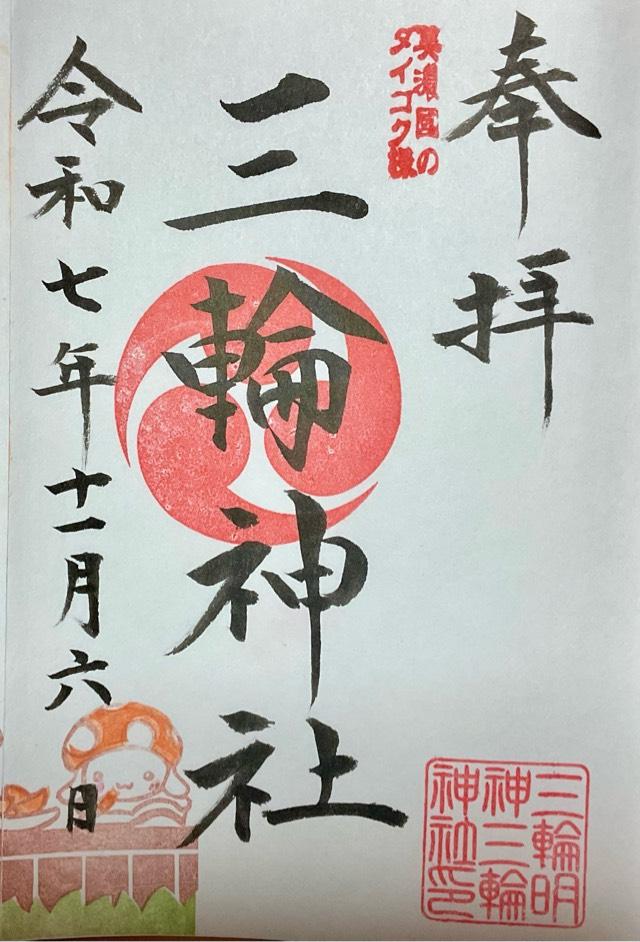 奉拝
美濃国の
ダイコク様
三輪神社
令和七年十一月六日
三輪明
神三輪
神社印